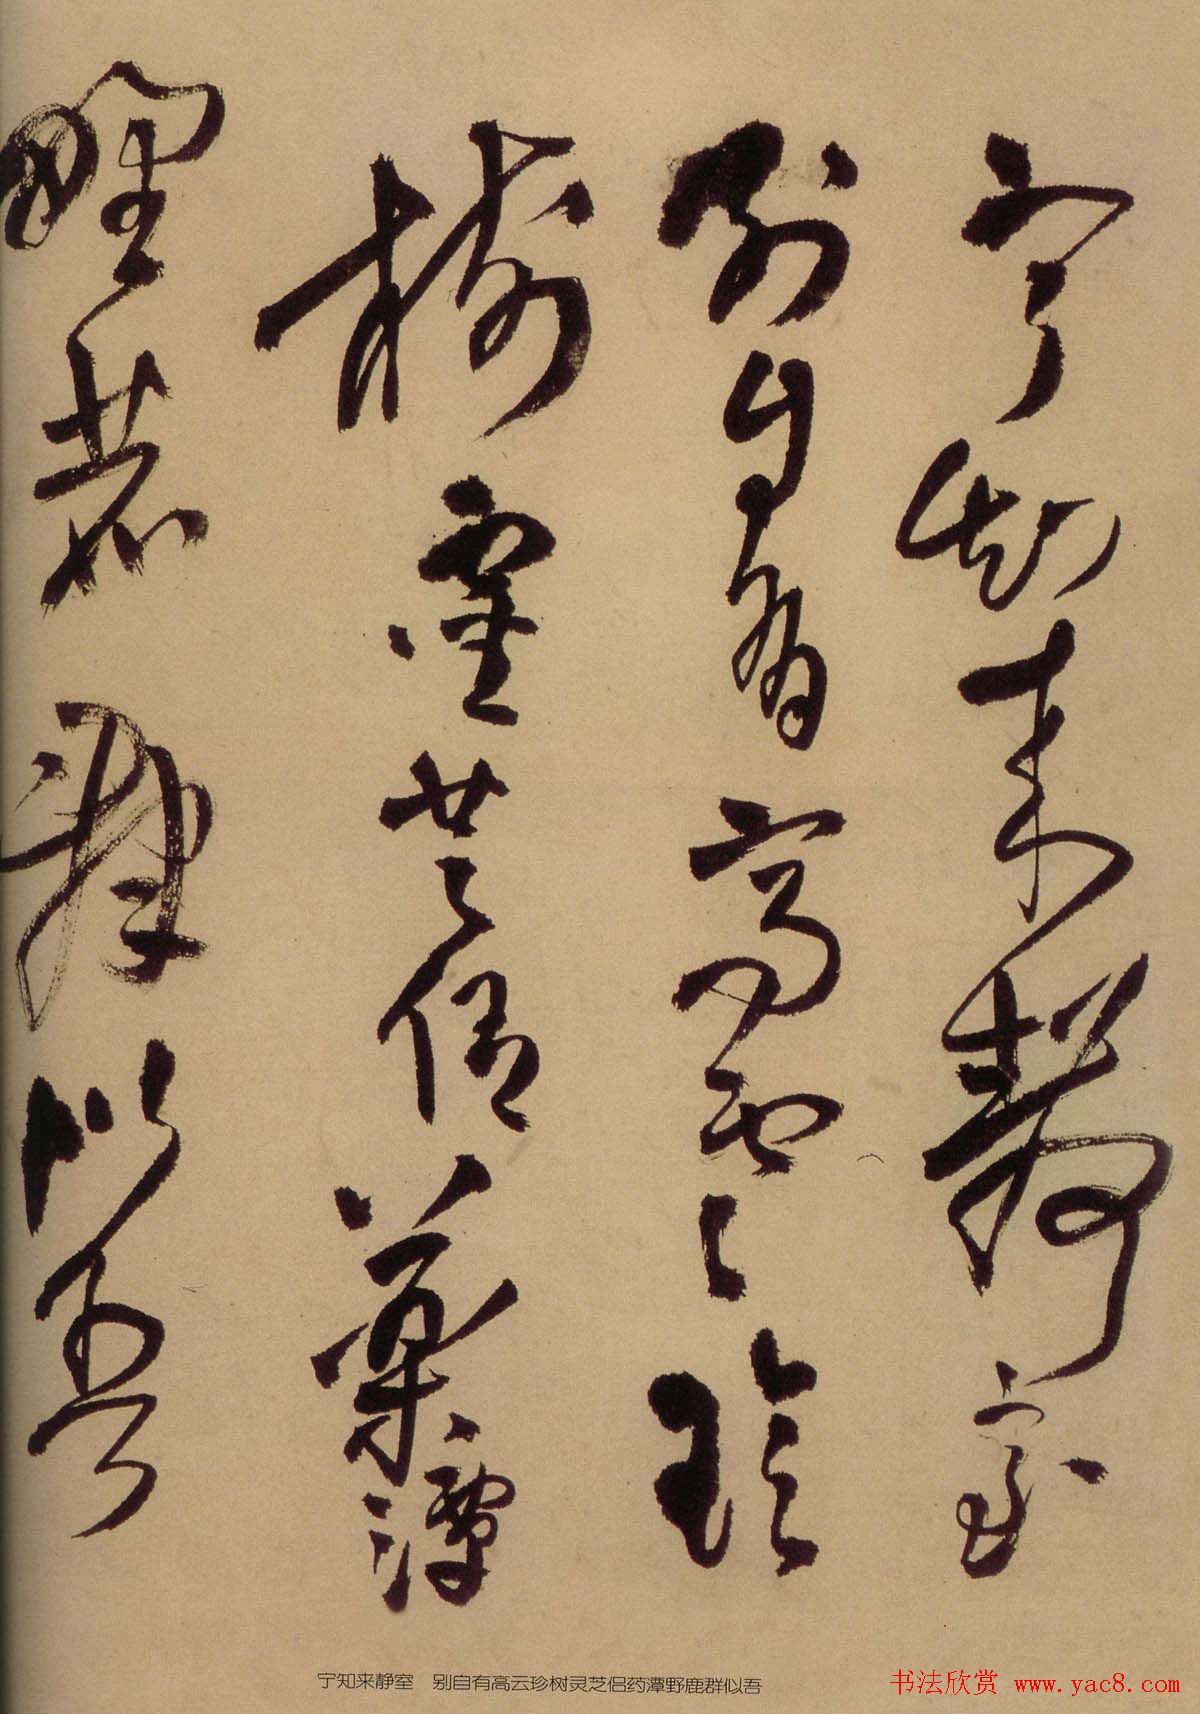 寧知來靜室
别自有高雲珍
樹靈芝侣藥潭
野鹿群似吾
宁知来静室 别自有高云珍树灵芝侣药潭野鹿群似吾
书法欣赏 www.yac8.com